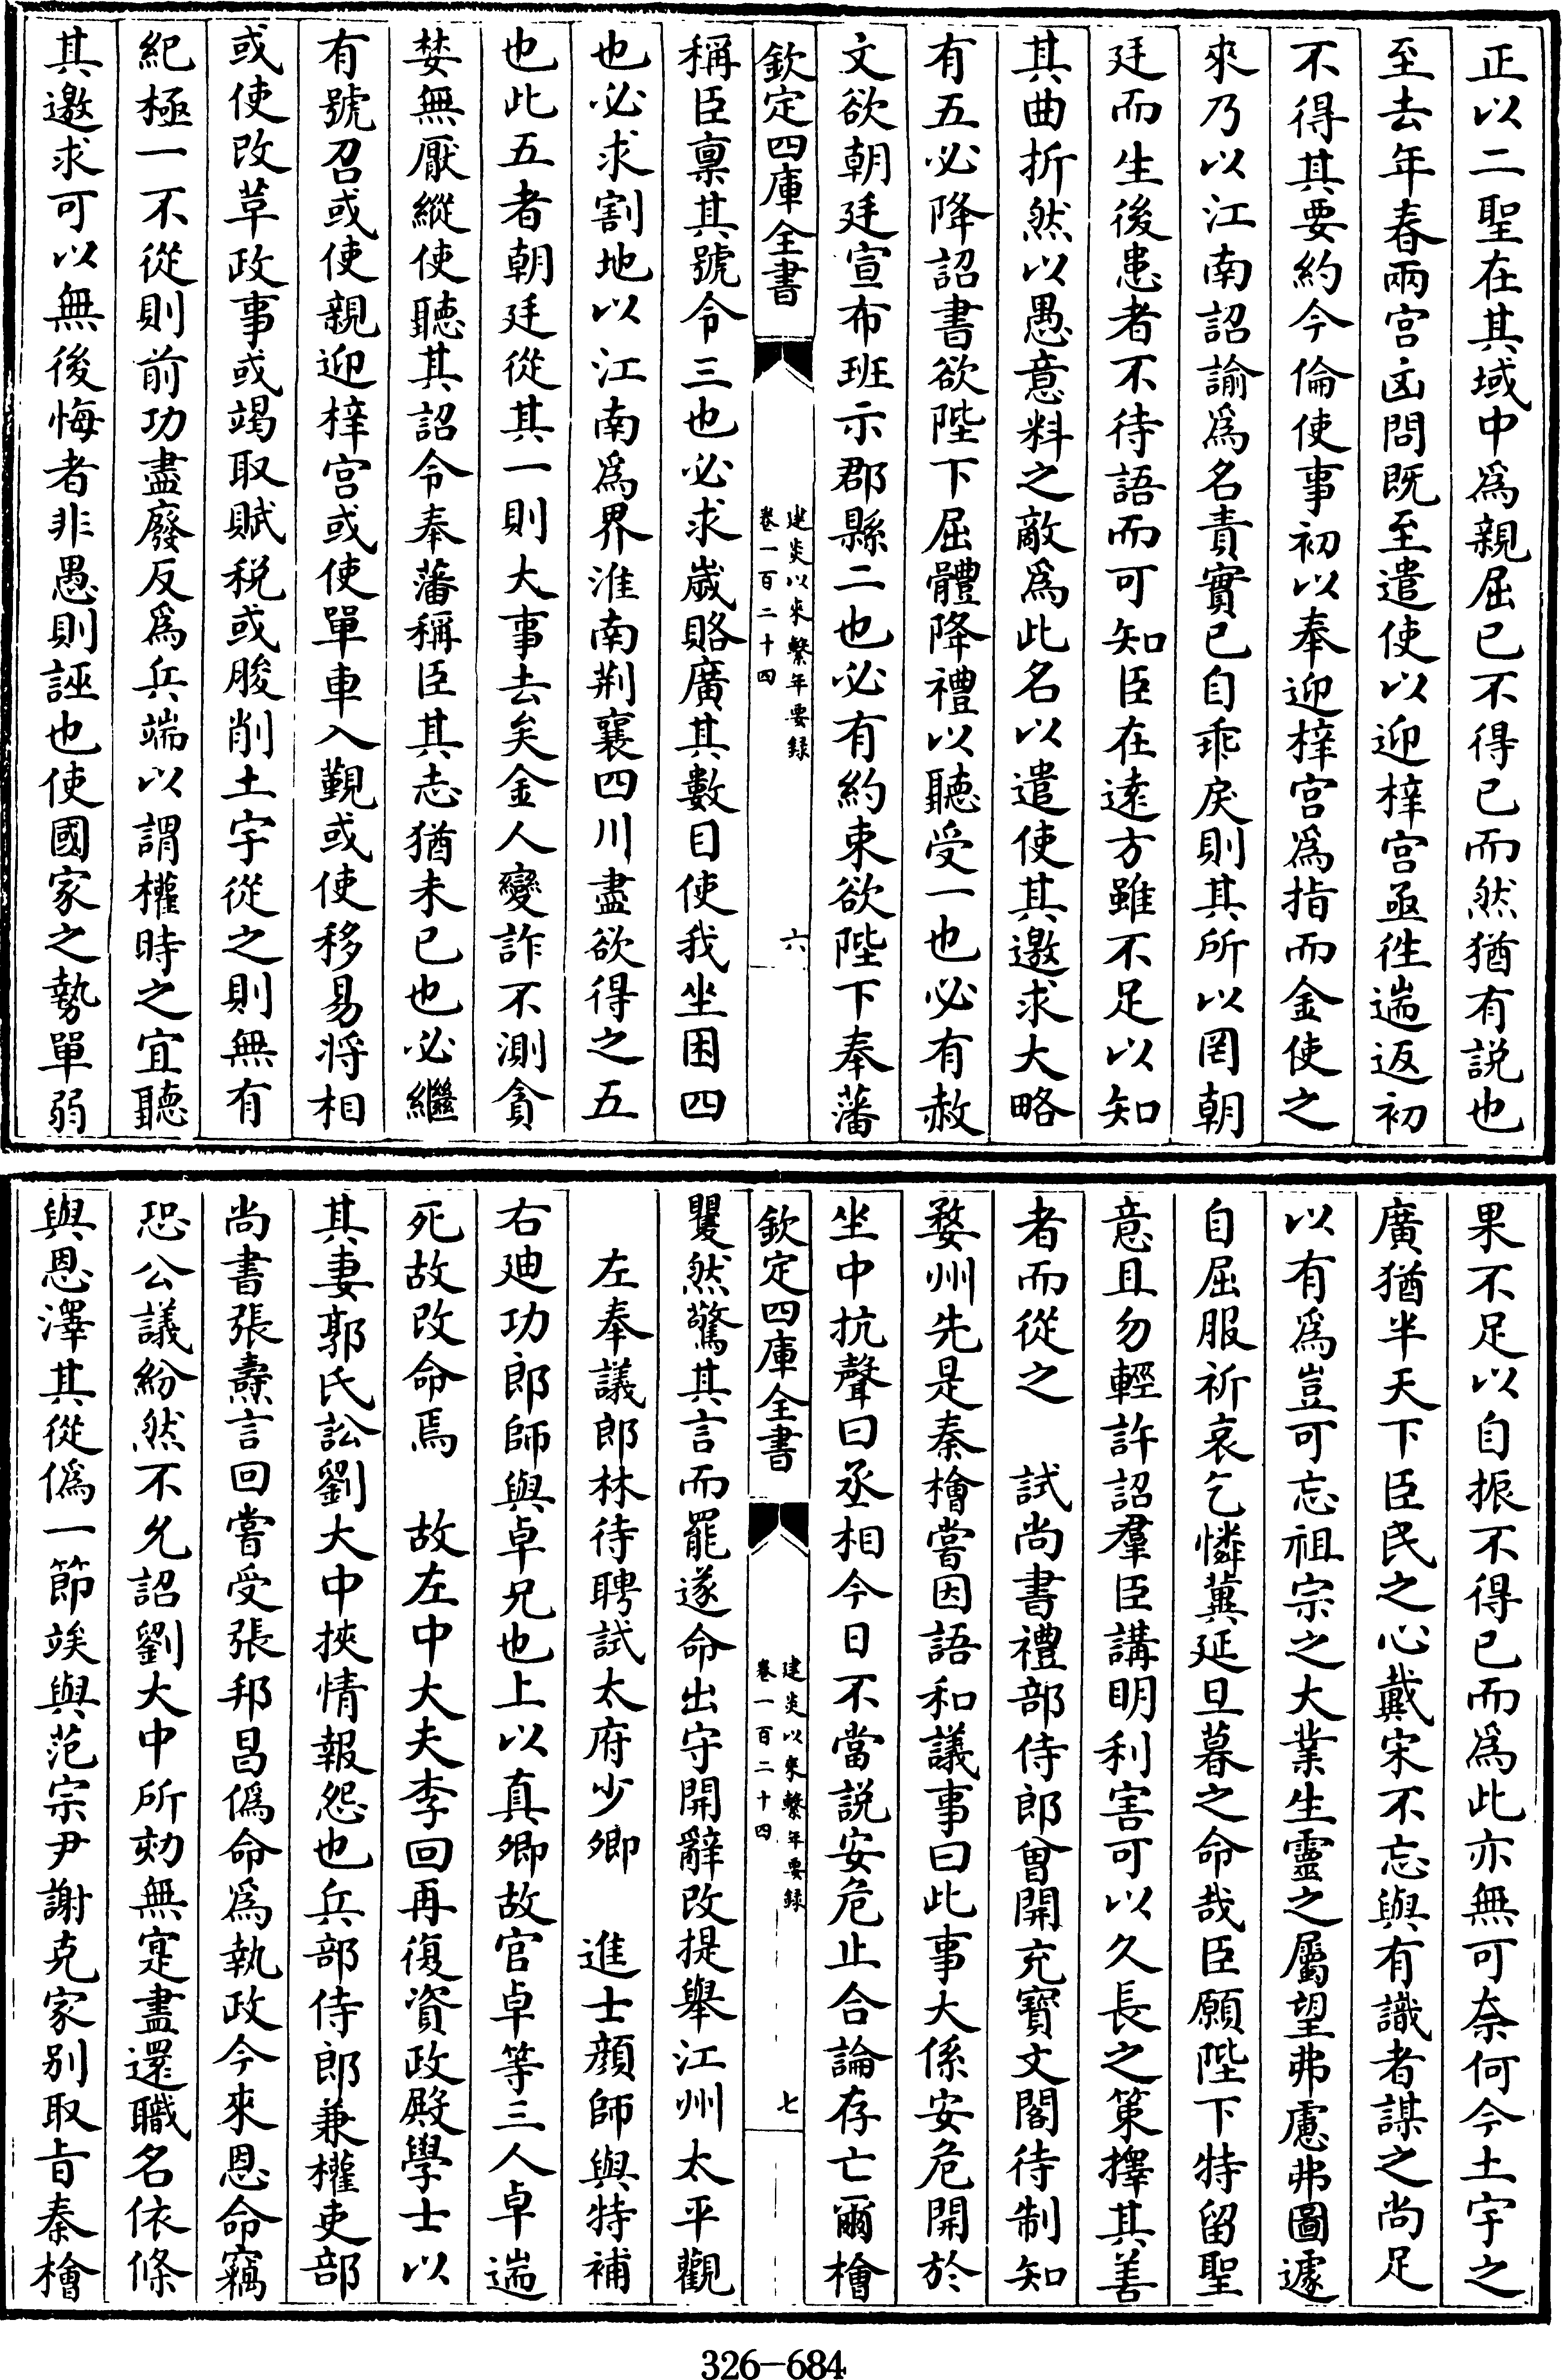 正以二聖在其域中爲親屈已不得已而然猶有説也
至去年春兩宫凶問既至遣使以迎梓宫亟徃遄返初
不得其要約今倫使事初以奉迎梓宫爲指而金使之
來乃以江南詔諭爲名責實已自乖戾則其所以罔朝
廷而生後患者不待語而可知臣在逺方雖不足以知
其曲折然以愚意料之敵爲此名以遣使其邀求大略
有五必降詔書欲陛下屈體降禮以聽受一也必有赦
文欲朝廷宣布班示郡縣二也必有約束欲陛下奉藩
欽定四庫全書
建炎以來繫年要録
卷一百二十四
六
稱臣稟其號令三也必求歲賂廣其數目使我坐困四
也必求割地以江南爲界淮南荆襄四川盡欲得之五
也此五者朝廷從其一則大事去矣金人變詐不測貪
婪無厭縱使聽其詔令奉藩稱臣其志猶未已也必繼
有號召或使親迎梓宫或使單車入覲或使移易將相
或使改革政事或竭取賦税或朘削土宇從之則無有
紀極一不從則前功盡廢反爲兵端以謂權時之宜聽
其邀求可以無後悔者非愚則誣也使國家之勢單弱
果不足以自振不得已而爲此亦無可奈何今土宇之
廣猶半天下臣民之心戴宋不忘與有識者謀之尚足
以有爲豈可忘祖宗之大業生靈之屬望弗慮弗圖遽
自屈服祈哀乞憐冀延旦暮之命哉臣願陛下特留聖
意且勿輕許詔羣臣講明利害可以久長之策擇其善
者而從之　試尚書禮部侍郎曾開充寳文閣待制知
婺州先是秦檜嘗因語和議事曰此事大係安危開於
坐中抗聲曰丞相今日不當説安危止合論存亡爾檜
欽定四庫全書
建炎以來繫年要録
卷一百二十四
七
矍然驚其言而罷遂命出守開辭改提舉江州太平觀
左奉議郎林待聘試太府少卿　進士顔師與特補
右廸功郎師與卓兄也上以真卿故官卓等三人卓遄
死故改命焉　故左中大夫李回再復資政殿學士以
其妻郭氏訟劉大中挾情報怨也兵部侍郎兼權吏部
尚書張燾言回嘗受張邦昌僞命爲執政今來恩命竊
恐公議紛然不允詔劉大中所劾無寔盡還職名依條
與恩澤其從僞一節竢與范宗尹謝克家别取旨秦檜
326-684